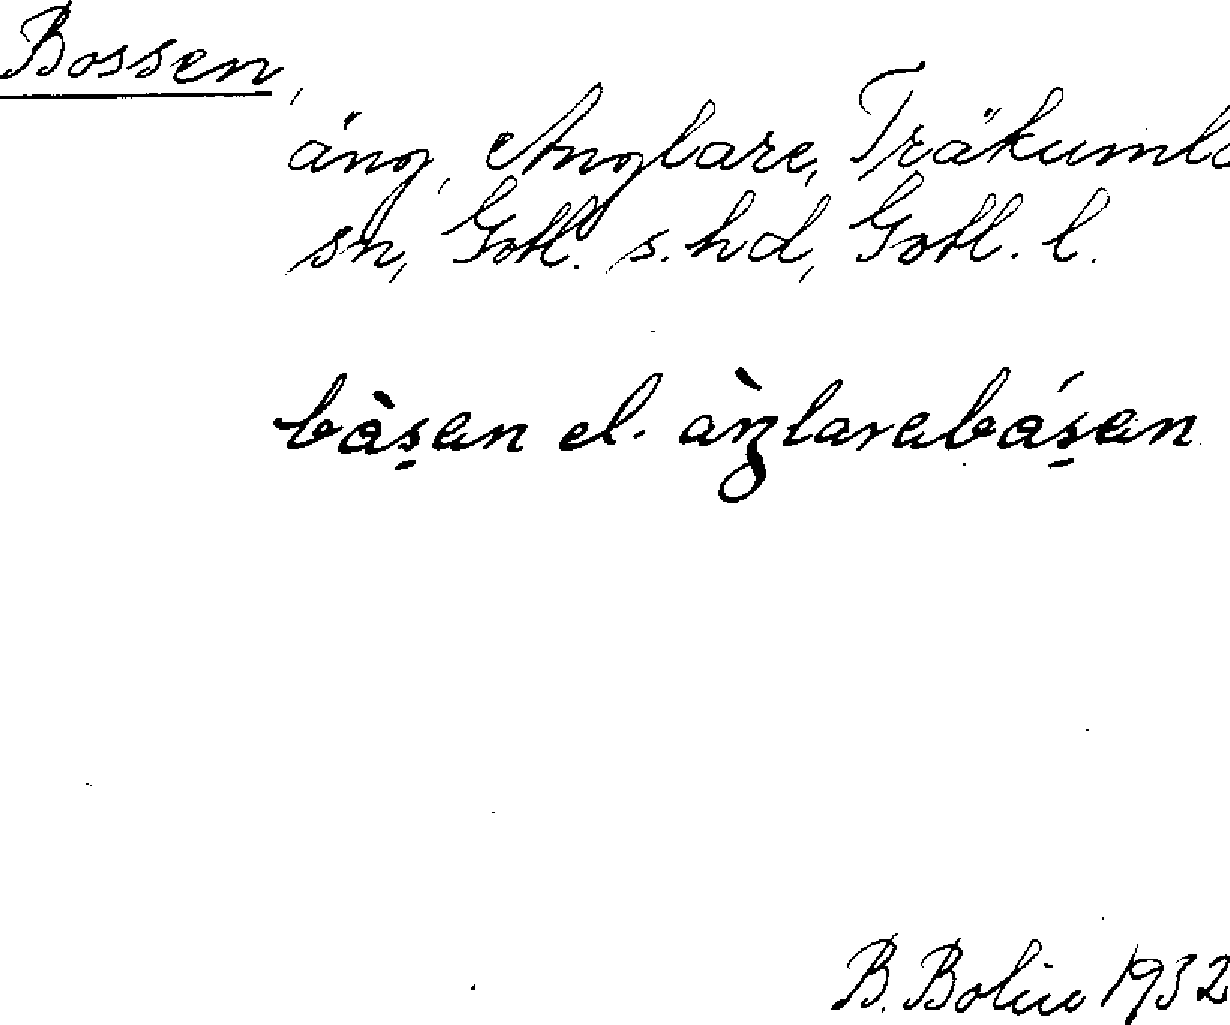 Bossen,
äng, Anglare, Träkumla
sn, Gotl. s. hd, Gotl. l.
bàs̱en el. àŋlarabás̱en
B. Bolin 1932